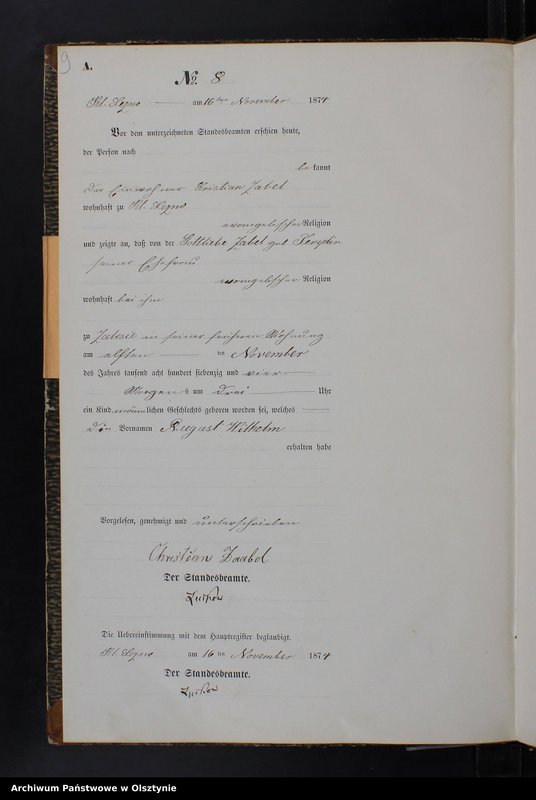 9
A.
No. 8
Kl. Lezno am 16ten November 1874
Vor dem unterzeichneten Standesbeamten erschien heute,
der Person nach
bekannt
der Einwohner Cristian Zabel
wohnhaft zu Kl. Lezno
evangelischer Religion
und zeigte an, daß von der Gottliebe Zabel geb
seiner Ehefrau
evangelischer Religion
wohnhaft bei ihm
zu Zalesie in seiner früheren Wohnung
am elften ten November
des Jahres tausend acht hundert siebenzig und vier
Morgens um drei Uhr
ein Kind männlichen Geschlechts geboren worden sei, welches
die Vornamen August Wilhelm
erhalten habe
Vorgelesen, genehmigt und unterschrieben
Christian Zabel
Der Standesbeamte.
Die Uebereinstimmung mit dem Hauptregister beglaubigt.
Kl. Lezno am 16 ten November 1874
Der Standesbeamte.
Archiwum Państwowe w Olsztynie